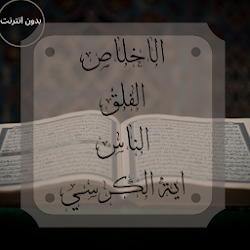 بدون انترنت
الاخلاص
الفلق
الناس
اية الكرسي